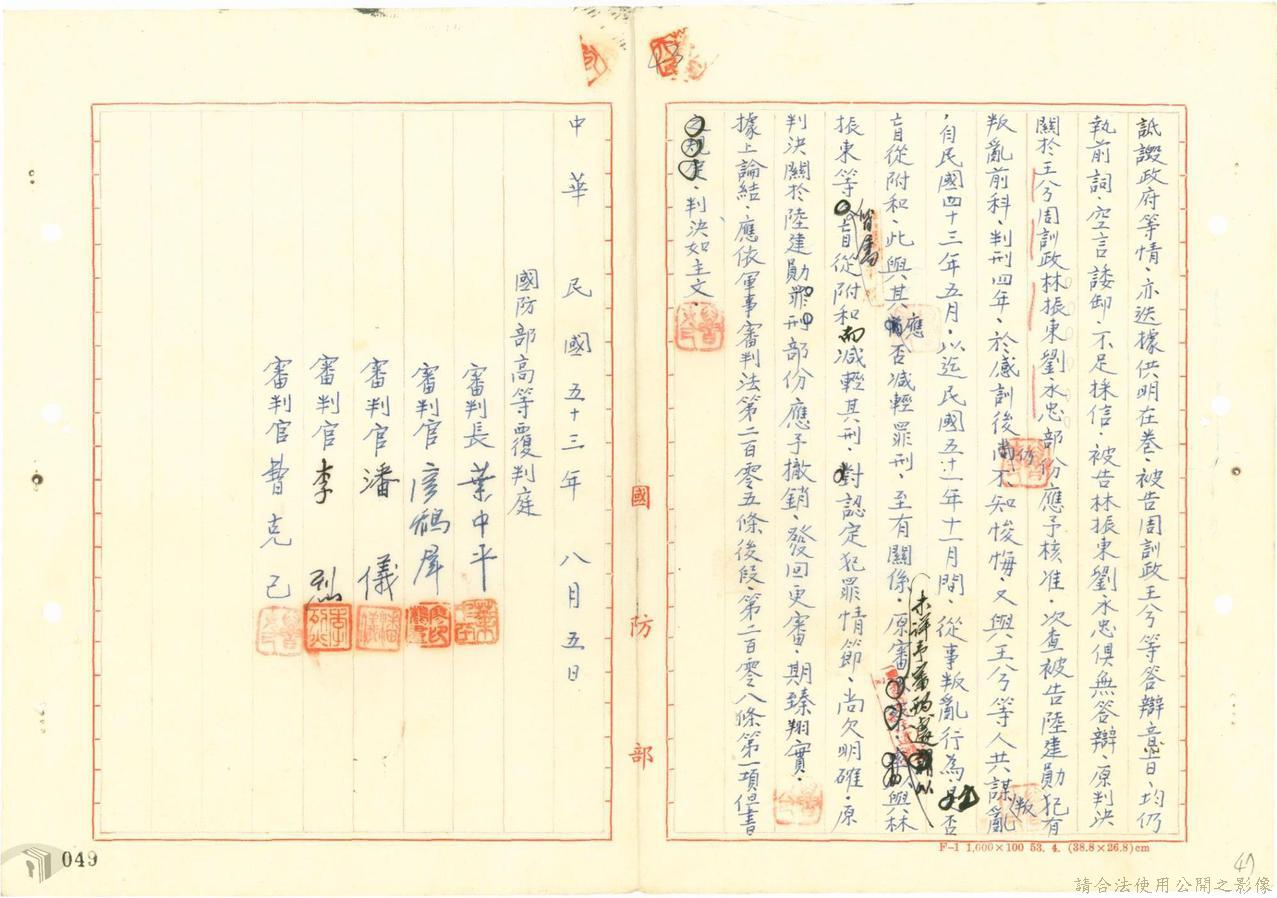 詆譭政府等情、亦迭據供明在卷、被告周訓政王兮等答辯意旨、均仍
執前詞、空言諉卸、不足採信、被告林振東劉永忠俱無答辯、原判決
關於王兮周訓政林振東劉永忠部份應予核准、次查被告陸建勛犯有
叛亂前科、判刑四年、於感訓後仍不知悛悔、又與王兮等人共謀叛亂
、自民國四十三年五月、以迄民國五十一年十一月間、從事叛亂行為、是否
盲從附和、此與其應否減輕罪刑、至有關係、原審未詳予審酌遽以與林
振東等皆屬盲從附和而減輕其刑、對認定犯罪情節、尚欠明確、原
判決關於陸建勛罪刑部份應予撤銷、發回更審、期臻翔實、
據上論結、應依軍事審判法第二百零五條後段、第二百零八條第一項但書
之規定、判決如主文、
國防部
中華民國五十三年八月五日
國防部高等覆判庭
審判長 葉中平
審判官 彥鶴犀
審判官 潘儀
審判官 李烈
審判官 曹克己
049
49
F-1 1,000×100 53. 4. (38.8×26.8)cm
請合法使用公開之影像